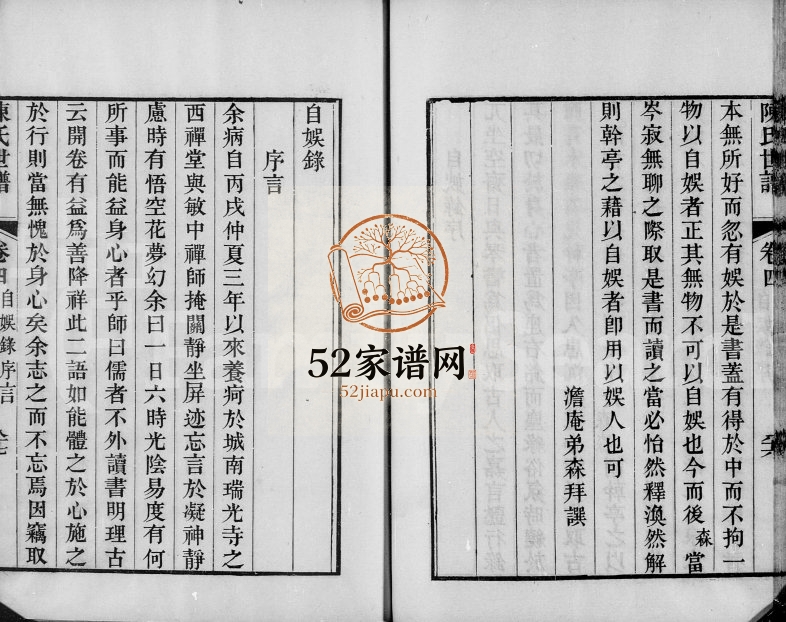 陳氏世譜 卷四
本無所好而忽有娛於是書蓋有得於中而不拘一
物以自娛者正其無物不可以自娛也今而後森當
岑寂無聊之際取是書而讀之當必怡然釋渙然解
則幹亭之藉以自娛者卽用以娛人也可
澹庵弟森拜譔
自娛錄
序言
余病自丙戌仲夏三年以來養疴於城南瑞光寺之
西禪堂與敏中禪師掩關靜坐屏迹忘言於凝神靜
慮時有悟空花夢幻余曰一日六時光陰易度有何
所事而能益身心者乎師曰儒者不外讀書明理古
云開卷有益爲善降祥此二語如能體之於心施之
於行則當無愧於身心矣余志之而不忘焉因竊取
陳氏世譜 卷四 自娛錄序言
52家谱网
52jiapu.com